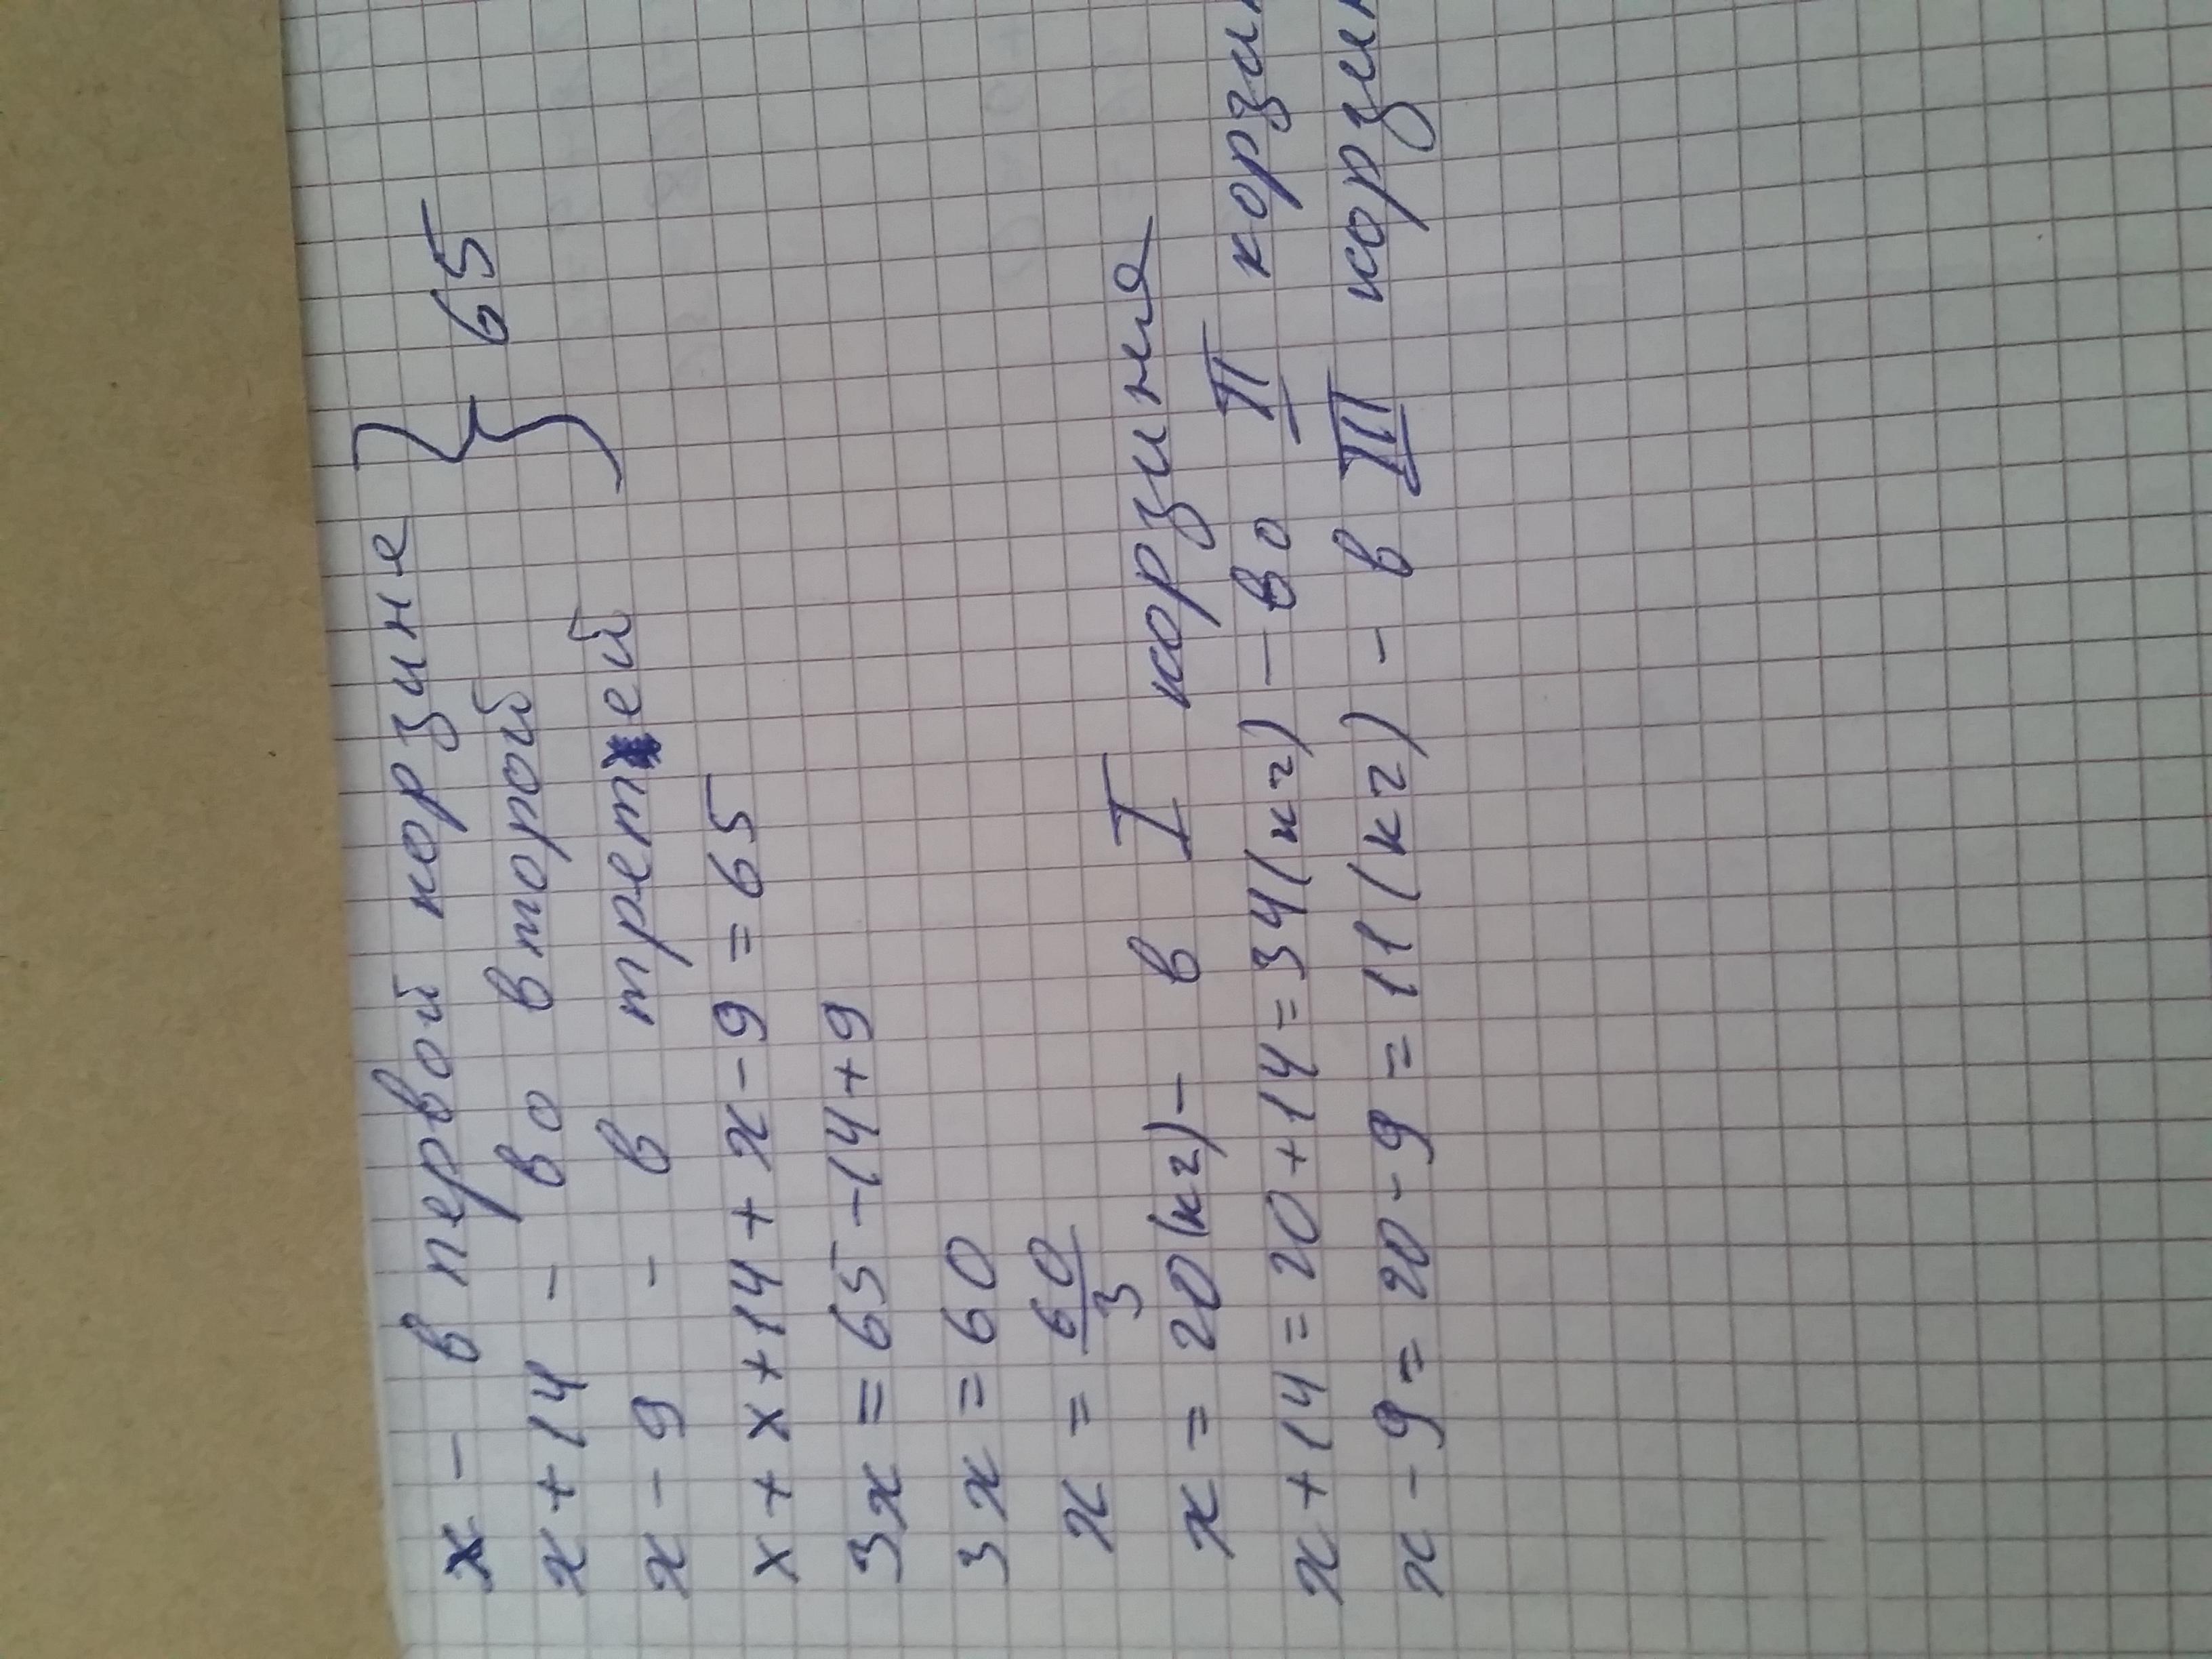 x - в первой корзине } 65
x + 14 - во второй
x - 9 - в третей
x + x + 14 + x - 9 = 65
3x = 65 - 14 + 9
3x = 60
x = 60/3
x = 20 (кг) - в I корзиня
x + 14 = 20 + 14 = 34 (кг) - во II корзи
x - 9 = 20 - 9 = 11 (кг) - в III корзин